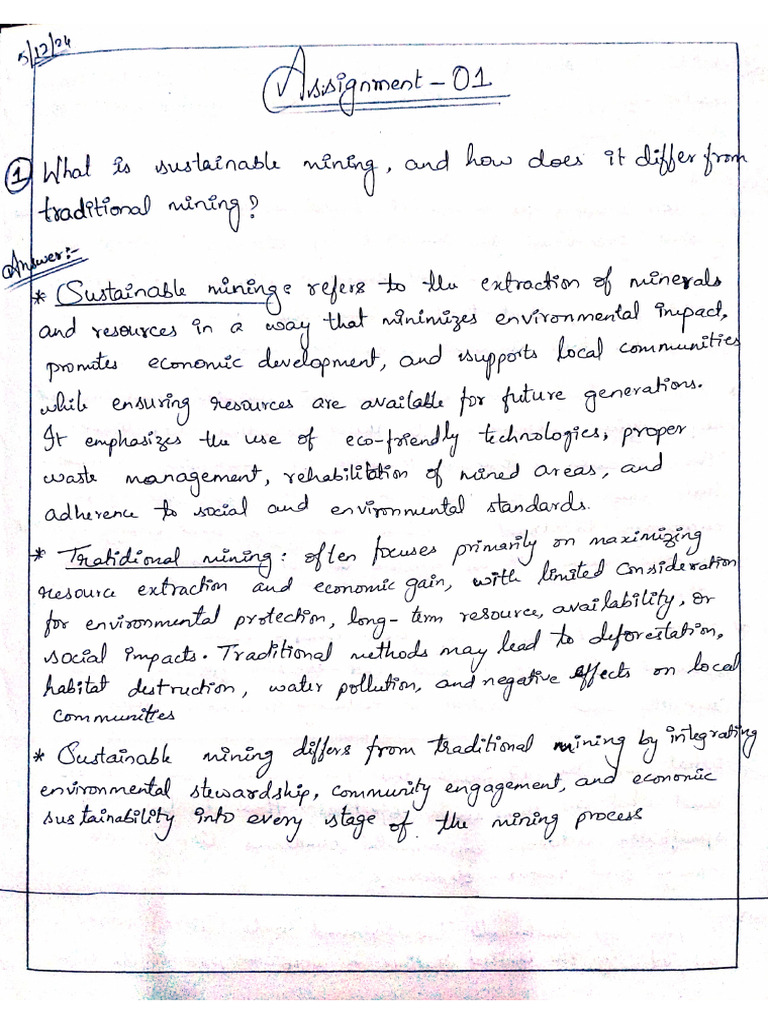 5/12/24
Assignment - 01
① What is sustainable mining, and how does it differ from
traditional mining?
Answer:-
* Sustainable mining: refers to the extraction of minerals
and resources in a way that minimizes environmental impact,
promotes economic development, and supports local communities
while ensuring resources are available for future generations.
It emphasizes the use of eco-friendly technologies, proper
waste management, rehabilitation of mined areas, and
adherence to social and environmental standards.
* Tratidional mining: often focuses primarily on maximizing
resource extraction and economic gain, with limited consideration
for environmental protection, long-term resource, availability, or
social impacts. Traditional methods may lead to deforestation,
habitat destruction, water pollution, and negative effects on local
communities
* Sustainable mining differs from traditional mining by integrating
environmental stewardship, community engagement, and economic
sustainability into every stage of the mining process